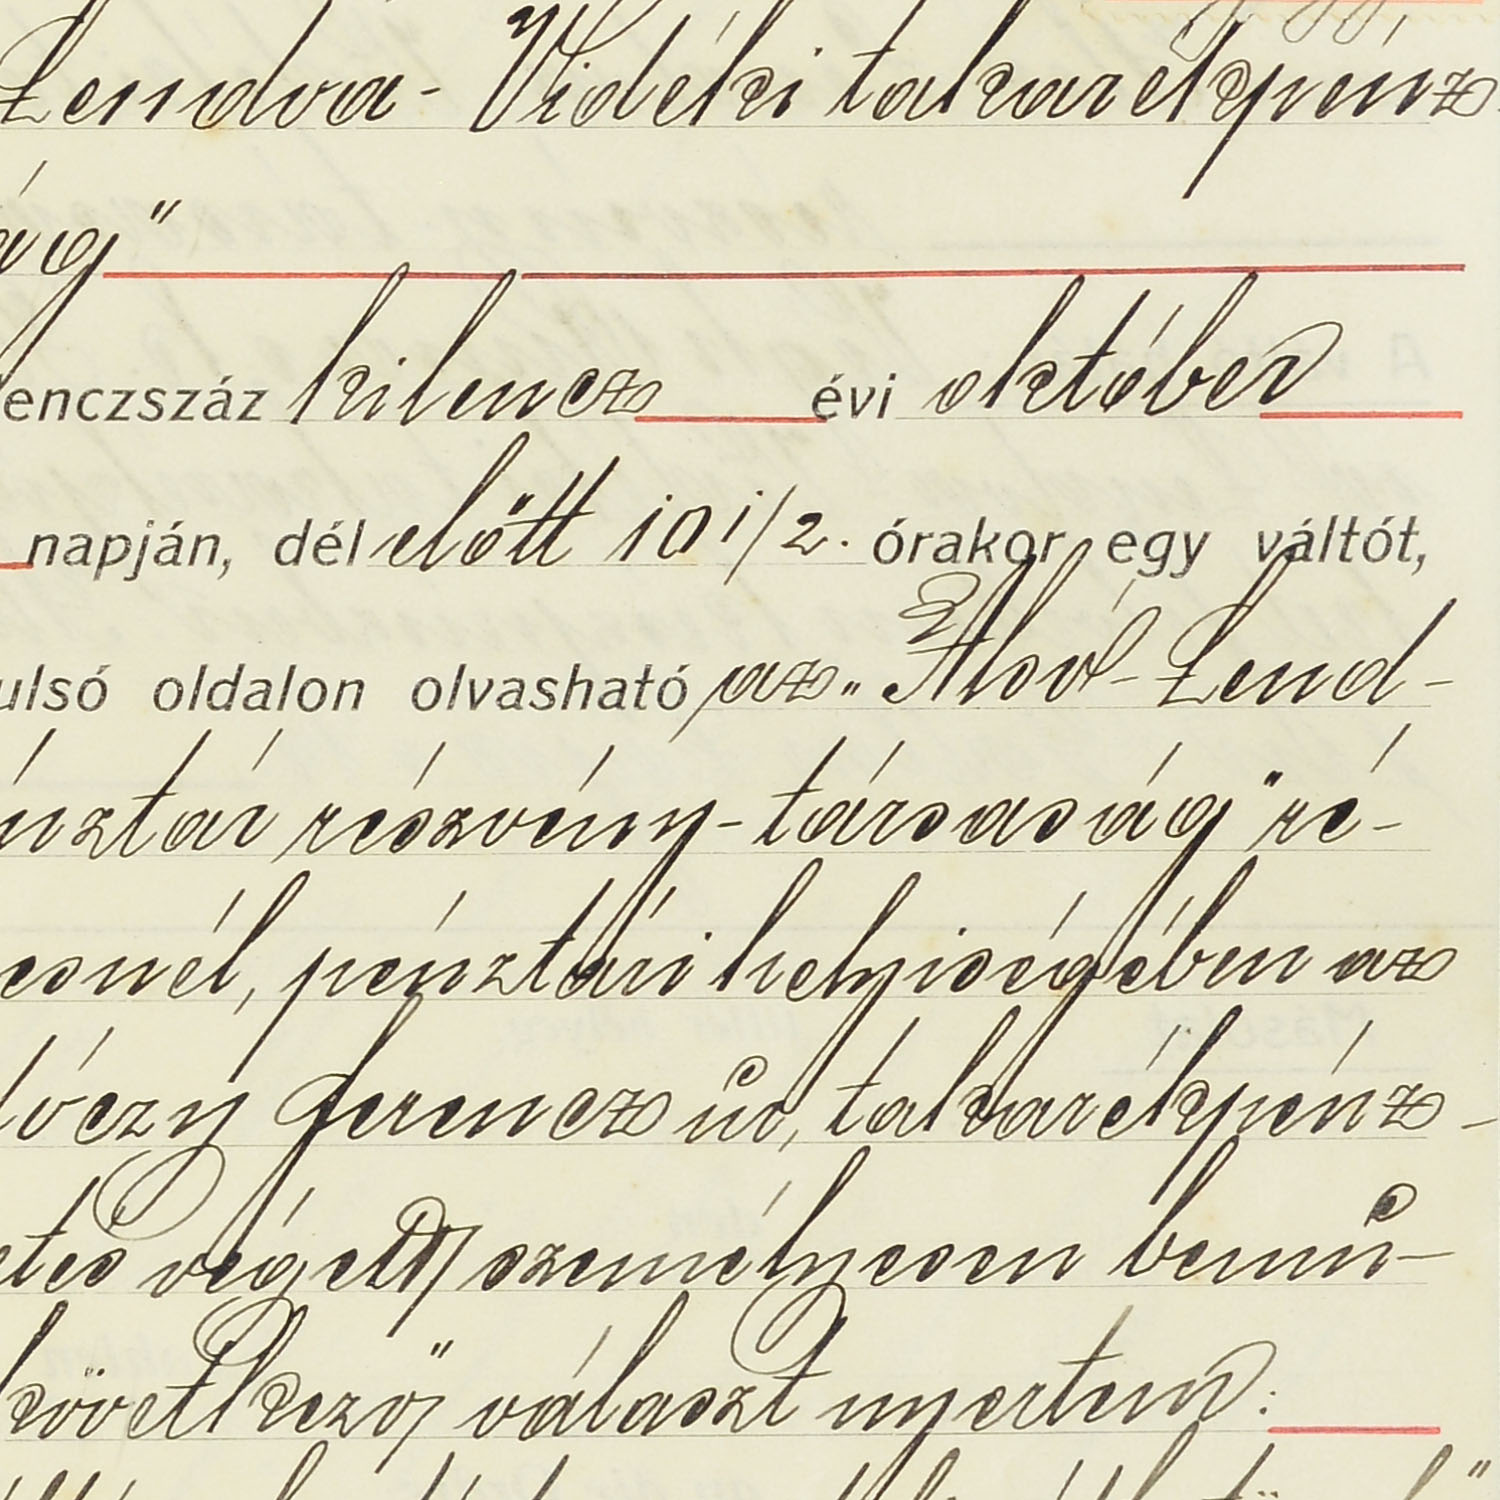 Lendva-Vidéki takarékpénz
ág"
enczszáz kilencz évi október
napján, dél előtt 10 1/2. órakor egy váltót,
ulsó oldalon olvasható, az „Alsó-Lend-
énztár részvény-társaság" ré-
esnél, pénztári helyiségében az
lóczy Ferencz úr, takarékpénz-
etés végett, személyesen bemu-
következő, választ nyertem: